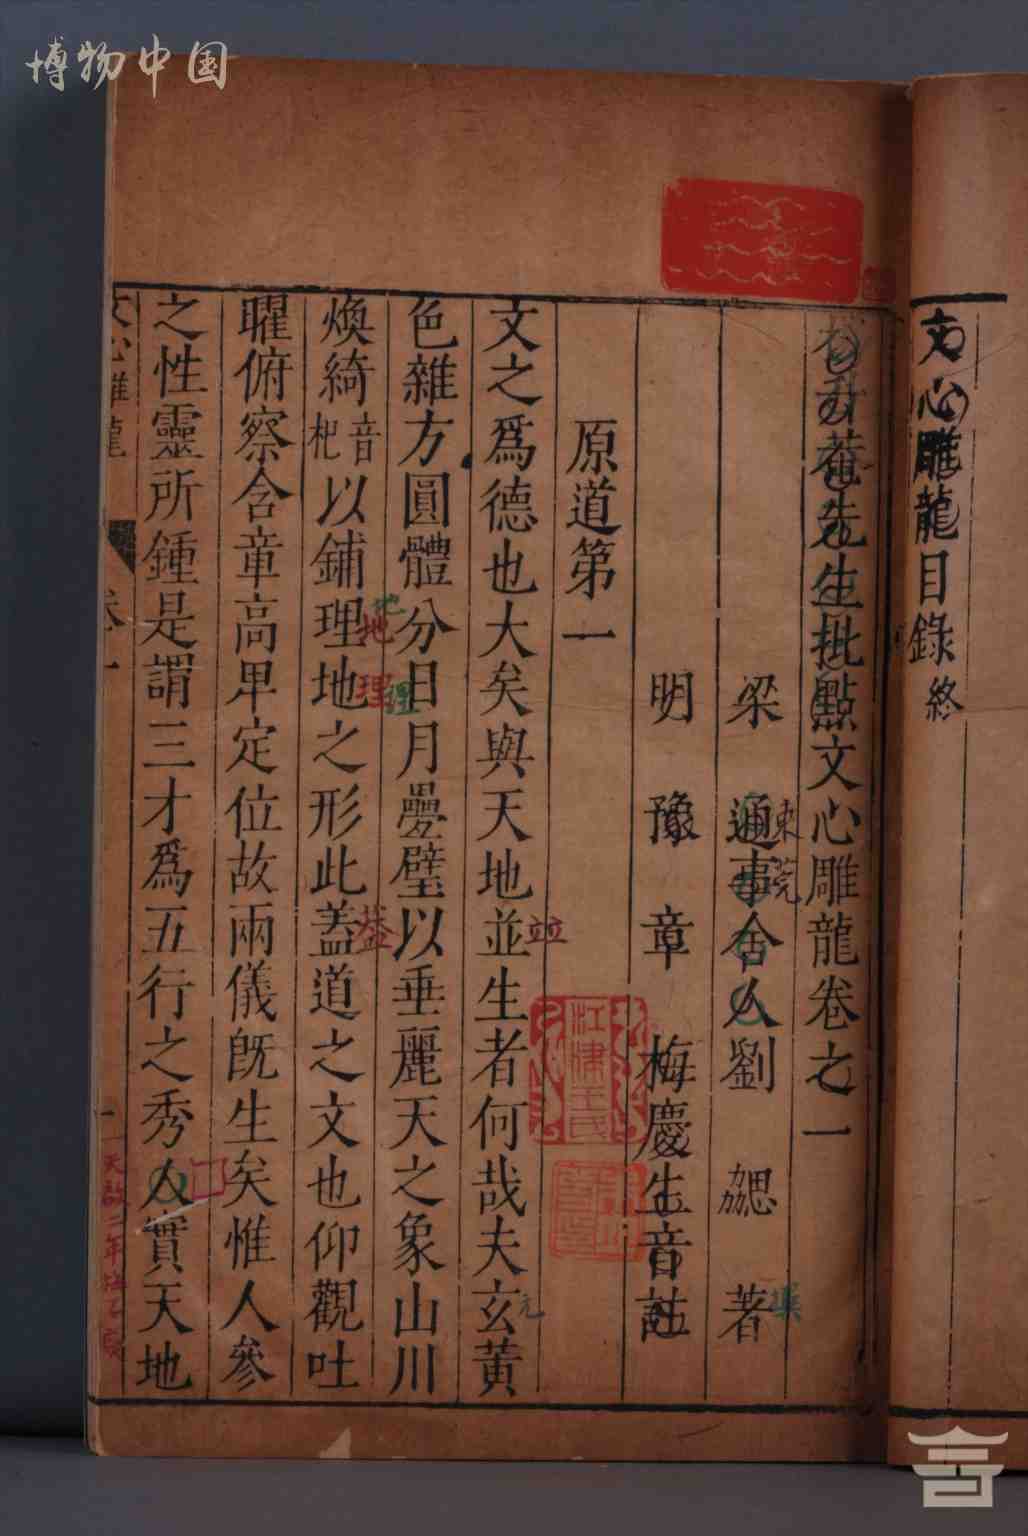 博物中国
文心雕龍目錄終
楊升菴先生批點文心雕龍卷之一
梁 通事舍人劉勰 著
東莞
撰
明 豫章 梅慶生音註
江津王氏
原道第一
文之爲德也大矣與天地並生者何哉夫玄黃
竝
元
色雜方圓體分日月疊璧以垂麗天之象山川
煥綺音杷以鋪理地之形此蓋道之文也仰觀吐
地理
地理
曜俯察含章高卑定位故兩儀旣生矣惟人參
之性靈所鍾是謂三才爲五行之秀人實天地
文心雕龍 卷一
天啟二年梅